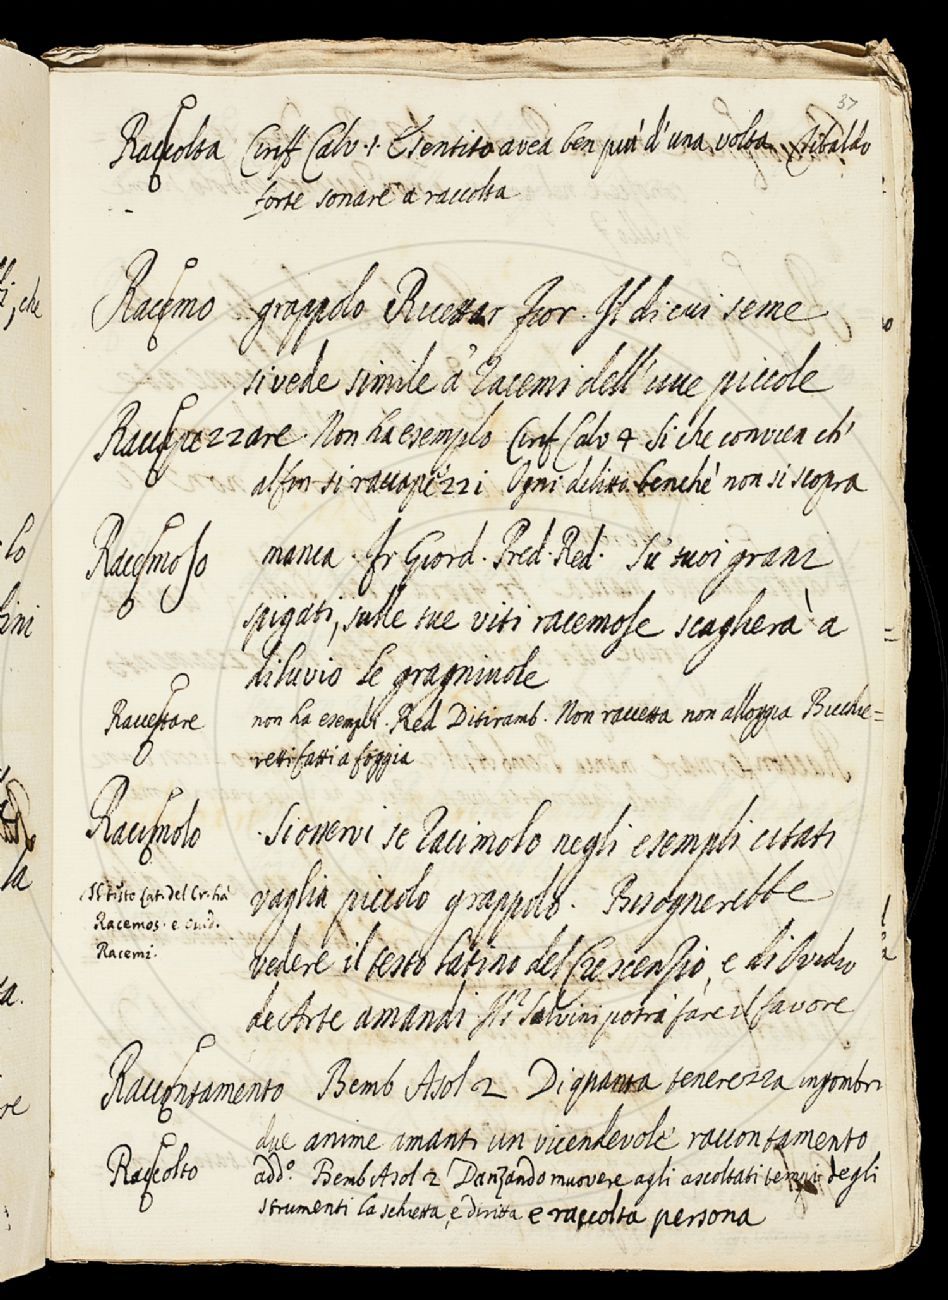 37
Raccolta Ciriff Calv. 1. E sentito avea ben più d'una volta Tibaldo
forte sonare a raccolta
Racemo grappolo Ricettar Fior. Il di cui seme
si vede simile a' racemi dell'uve piccole
Raccapezzare. Non ha esemplo Cirif Calv 4 Si che convien ch'
alfin si raccapezzi Ogni delitto benchè non si scopra
Racemoso manca. Fr Giord. Pred. Red. Su tuoi grani
spigati, sulle tue viti racemose scagherà a
diluvio le gragniuole
Raccettare non ha esempli. Red Ditiramb. Non raccetta non alloggia Bicchie=
retti fatti a foggia
Racimolo . Si osservi se racimolo negli esempli citati
vaglia piccolo grappolo. Bisognerebbe
vedere il testo latino del Crescenzio, e di Ovidio
de Arte amandi Il Sr Salvini potrà fare il favore
Il testo lat. del Cr. ha
Racemos. e Ouid.
Racemi.
Raccontamento Bemb Asol 2 Di quanta tenerezza ingombri
due anime amanti un vicendevole raccontamento
Raccolto add.o Bemb Asol 2 Danzando muovere agli ascoltati tempi degli
strumenti la schietta, e diritta e raccolta persona